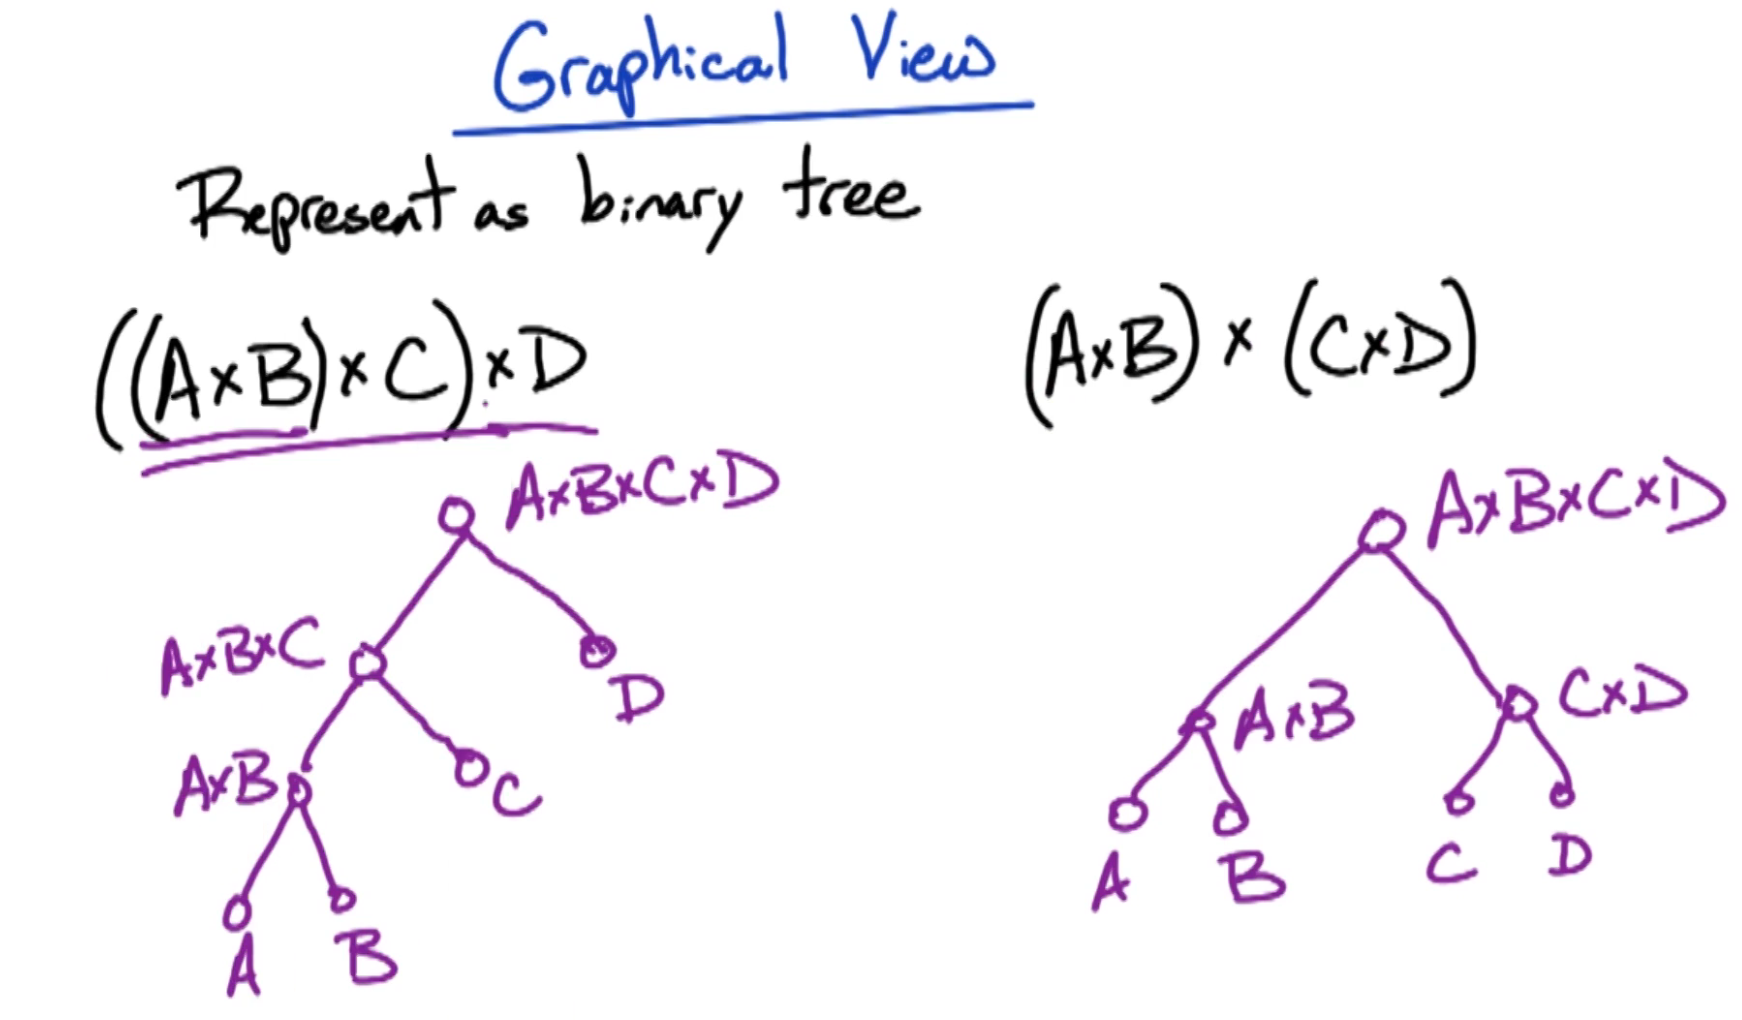 Graphical View
Represent as binary tree
((A×B)×C)×D
(A×B) × (C×D)
A×B×C×D
A×B×C
D
A×B
C
A
B
A×B×C×D
A×B
C×D
A
B
C
D